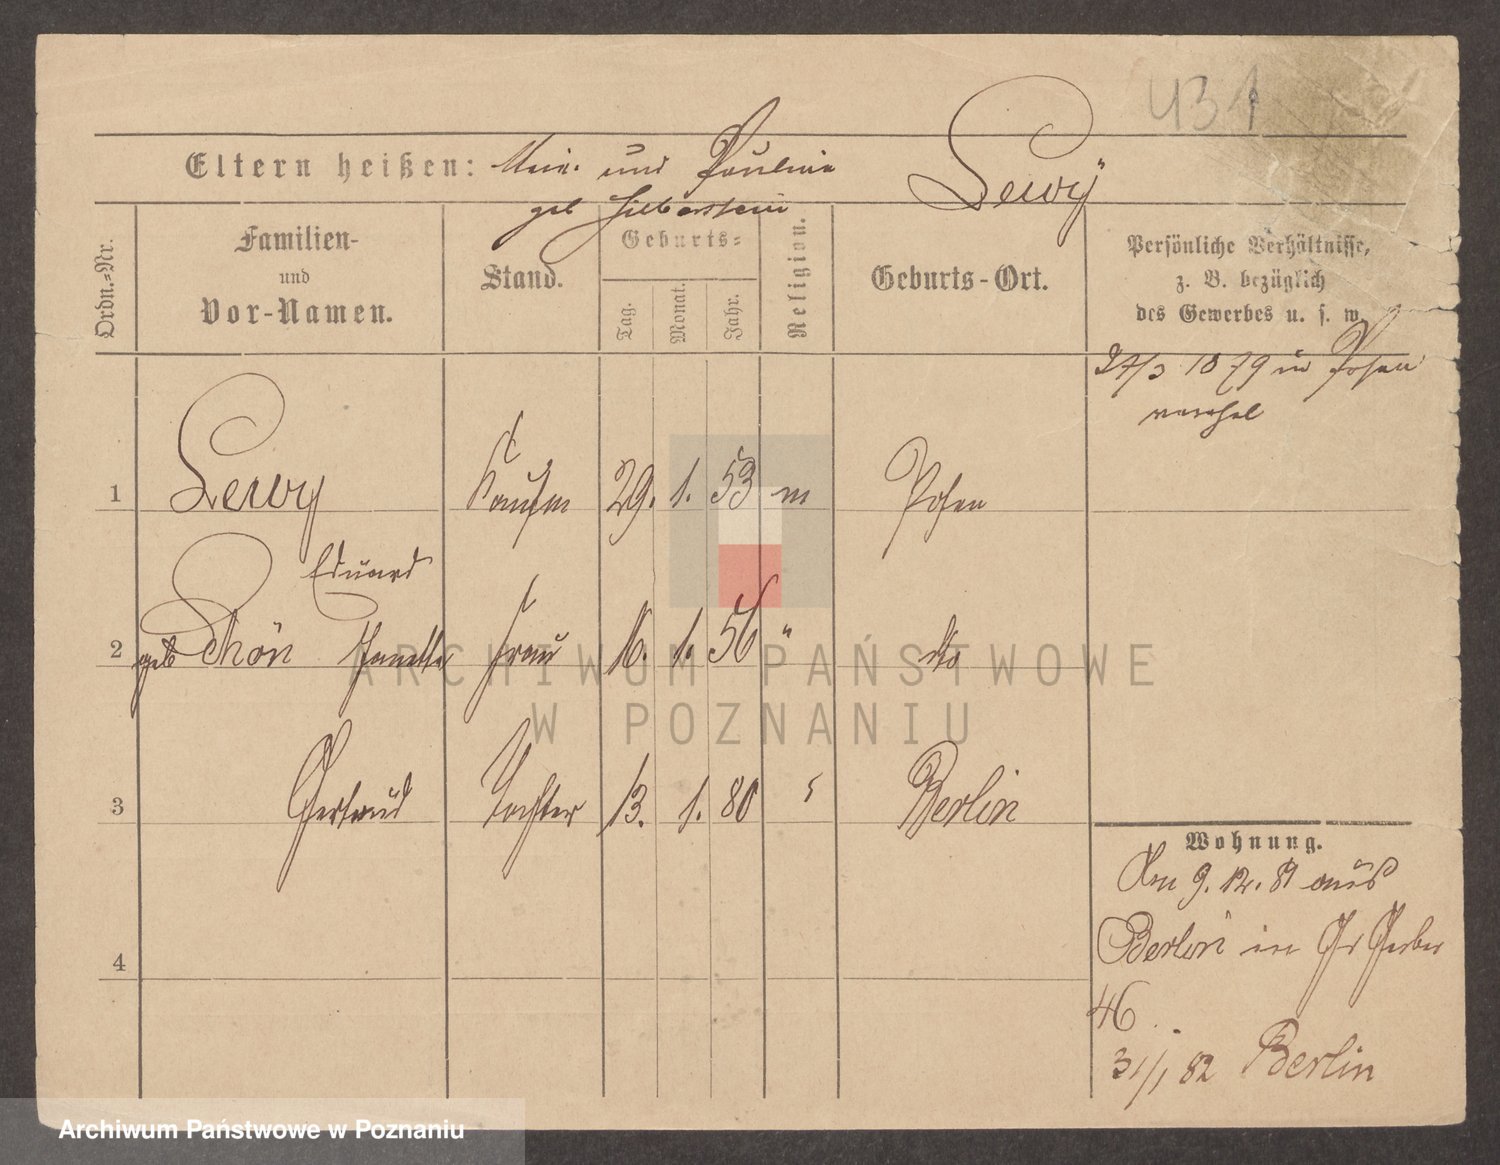 431
Eltern heißen: und Pauline Lewy
geb Silberstein
Ordn.-Nr.
Familien-
und
Vor-Namen.
Stand.
Geburts-
Tag.
Monat.
Jahr.
Religion.
Geburts-Ort.
Persönliche Verhältnisse,
z. B. bezüglich
des Gewerbes u. s. w.
1879 in Posen
1 Lewy Kaufm 29. 1. 53 m Posen
Eduard
2 geb Schön Janette Frau 16. 1. 56 " dto
3 Gertrud Tochter 13. 1. 80 Berlin
4
Wohnung.
Am 9. 12. 81 aus
Berlin in Gr Gerber
46
31/1 82 Berlin
ARCHIWUM PAŃSTWOWE
W POZNANIU
Archiwum Państwowe w Poznaniu